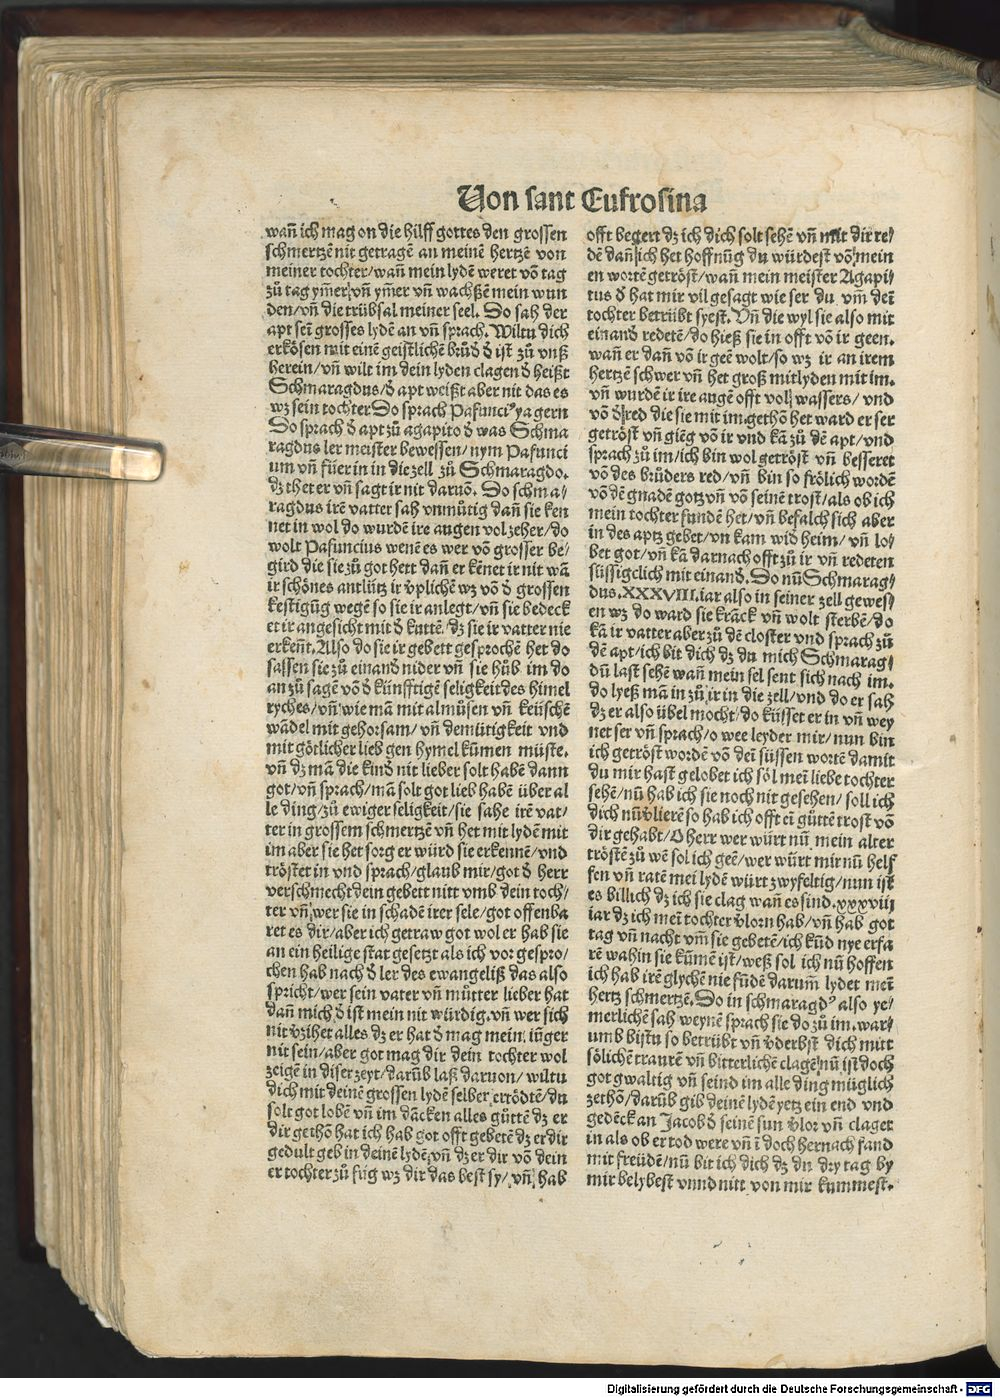 Von sant Eufrosina
wañ ich mag on die hilff gottes den grossen
schmertzẽ nit getragẽ an meinẽ hertzẽ von
meiner tochter/wañ mein lydẽ weret võ tag
zů tag ym̃er vñ ym̃er vñ wachßẽ mein wun
den/vñ die trübsal meiner seel. Do sah der
apt sein̄ grosses lydẽ an vñ sprach. Wiltu dich
erkösen mit einẽ geistlichẽ brůd̄ d̄ ist zů vnß
herein/vñ wilt im dein lyden clagen d̄ heißt
Schmaragdus/d̄ apt weißt aber nit das es
wz sein tochter Do sprach Pafunciꝰ ya gern
Do sprach d̄ apt zů agapito d̄ was Schma
ragdus ler meister bewessen/nym Pafunci
um vñ füer in in die zell zů Schmaragdo.
dz thet er vñ sagt ir nit daruõ. Do schma/
ragdus irẽ vatter sah vnmůtig dañ sie ken
net in wol do wurdẽ ire augen vol zeher/do
wolt Pafuncius wenẽ es wer võ grosser be/
gird die sie zů got hett dañ er kẽnet ir nit wã
ir schönes antlütz ir v̄plichẽ wz võ d̄ grossen
kestigũg wegẽ so sie ir anlegt/vñ sie bedeck
et ir angesicht mit d̄ kuttẽ/dz sie ir vatter nie
erkeñt, Also do sie ir gebett gesprochẽ het do
sassen sie zů einand̄ nider vñ sie hůb im do
an zů sagẽ võ d̄ künfftigẽ seligkeit des himel
ryches/vñ wie mã mit almůsen vñ keüschẽ
wãdel mit gehorsam/vñ demütigkeit vnd
mit götlicher lieb gen hymel kũmen müste.
vñ dz mã die kind̄ nit lieber solt habẽ dann
got/vñ sprach/mã solt got lieb habẽ über al
le ding/zů ewiger seligkeit/sie sahe irẽ vat/
ter in grossem schmertzẽ vñ het mit lydẽ mit
im aber sie het sorg er würd sie erkennẽ/vnd
tröstet in vnd sprach/glaub mir/got d̄ herr
verschmecht dein gebett nitt vmb dein toch/
ter vñ wer sie in schadẽ irer sele/got offenba
ret es dir/aber ich getraw got wol er hab sie
an ein heilige stat gesetzt als ich vor gespro/
chen hab nach d̄ ler des ewangeliß das also
spricht/wer sein vater vñ můtter lieber hat
dañ mich d̄ ist mein nit würdig. vñ wer sich
nit v̄zihet alles dz er hat d̄ mag mein iũger
nit sein/aber got mag dir dein tochter wol
zeigẽ in diser zeyt/darũb laß daruon/wiltu
dich mit deinẽ grossen lydẽ selber ertödtẽ/du
solt got lobẽ vñ im dãcken alles güttẽ dz er
dir gethõ hat ich hab got offt gebetẽ dz er dir
gedult geb in deinẽ lydẽ vñ dz er dir võ dein
er tochter zů füg wz dir das best sy/vñ hab
offt begert dz ich dich solt sehẽ vñ mit dir re/
dẽ dañ ich het hoffnũg du würdest võ mein
en wortẽ getröst/wañ mein meister Agapi/
tus d̄ hat mir vil gesagt wie ser du vm̃ dei̅
tochter betrübt syest. Vñ die wyl sie also mit
einand̄ redetẽ/do hieß sie in offt võ ir geen.
wañ er dañ võ ir geẽ wolt/so wz ir an irem
hertzẽ schwer vñ het groß mitlyden mit im.
vñ wurdẽ ir ire augẽ offt vol wassers/vnd
võ d̄ red die sie mit im gethõ het ward er ser
getröst vñ gieg̅ võ ir vnd kã zů dẽ apt/vnd
sprach zů im/ich bin wol getröst vñ besseret
võ des brůders red/vñ bin so frölich wordẽ
võ dẽ gnadẽ gotz vñ võ seinẽ trost/als ob ich
mein tochter fundẽ het/vñ befalch sich aber
in des aptz gebet/vn kam wid̄ heim/vñ lo/
bet got/vñ kã darnach offt zů ir vñ redeten
süssigclich mit einand̄. Do nũ Schmarag/
dus.XXXVIII.iar also in seiner zell gewes/
en wz do ward sie krãck vñ wolt sterbẽ/do
kã ir vatter aber zů dẽ closter vnd sprach zů
dẽ apt/ich bit dich dz du mich Schmarag/
dũ last sehẽ wañ mein sel sent sich nach im.
do lyeß mã in zů ir in die zell/vnd do er sah
dz er also übel mocht/do küsset er in vñ wey
net ser vñ sprach/o wee leyder mir/nun bin
ich getröst wordẽ võ dei̅ süssen wortẽ damit
du mir hast gelobet ich söl mei̅ liebe tochter
sehẽ/nũ hab ich sie noch nit gesehen/soll ich
dich nũ v̄lierẽ so hab ich offt ei̅ güttẽ trost võ
dir gehabt/O herr wer würt nũ mein alter
tröstẽ zů wẽ sol ich geẽ/wer würt mir nũ helf
fen vñ ratẽ mei lydẽ würt zwyfeltig/nun ist
es billich dz ich sie clag wañ es sind.xxxviij
iar dz ich mei̅ tochter v̄lorn hab/vñ hab got
tag vñ nacht vm̃ sie gebetẽ/ich kũd nye erfa
rẽ wahin sie kũmẽ ist/weß sol ich nũ hoffen
ich hab irẽ glychẽ nie fũdẽ darum̃ lydet mei̅
hertz schmertzẽ. Do in schmaragdꝰ also ye/
merlichẽ sah weynẽ sprach sie do zů im. war/
umb bistu so betrübt vñ v̄derbst dich mitt
sölichẽ traurẽ vñ bitterlichẽ clagẽ nũ ist doch
got gwaltig vñ seind im alle ding müglich
zethõ/darũb gib deinẽ lydẽ yetz ein end vnd
gedẽck an Jacob d̄ seinẽ sun v̄lor vñ claget
in als ob er tod were vñ i̅ doch hernach fand
mit freüdẽ/nũ bit ich dich dz du dry tag by
mir belybest vnnd nitt von mir kummest.
Digitalisierung gefördert durch die Deutsche Forschungsgemeinschaft - DFG